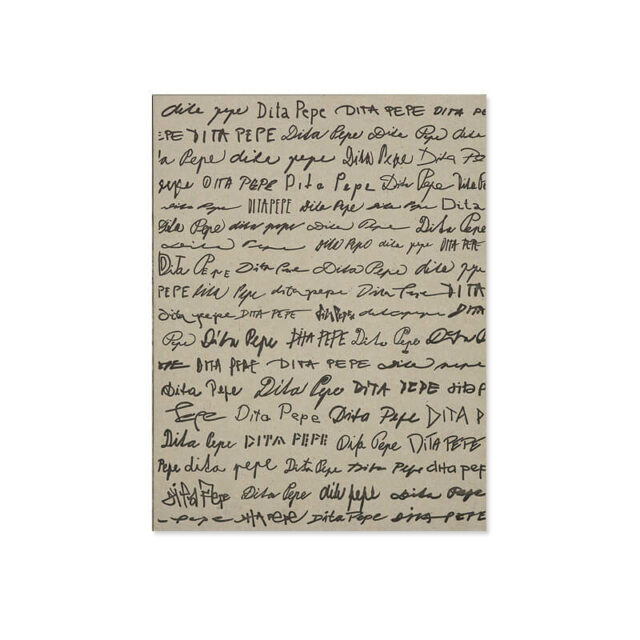 dita pepe Dita Pepe DITA PEPE DITA PE
EPE DITA PEPE Dita Pepe Dita Pepe dita
a Pepe dita pepe Dita Pepe Dita Pe
pepe DITA PEPE Dita Pepe Dita Pepe Dita P
dita Pepe DITA PEPE Dita Pepe dita Pepe Dita
Dita Pepe dita pepe Dita Pepe Dita Pepe
Dita Pepe Dita Pepo dita pepe DITA PEPE
DITA PEPE Dita Pepe Dita Pepe dita pe
PEPE Dita Pepe dita pepe Dita Pepe DITA
dita pepe DITA PEPE dita pepe dita pepe DITA
Pepe Dita Pepe DITA PEPE Dita Pepe Dita
PE DITA PEPE DITA PEPE dita pepe
Dita Pepe Dita Pepe DITA PEPE dita p
Pepe Dita Pepe Dita Pepe DITA P
Dita Pepe DITA PEPE Dita Pepe DITA PEPE
Pepe dita pepe Dita Pepe Dita Pepe dita pep
dita Pepe Dita Pepe dita pepe Dita Pepe
pepe DITA PEPE Dita Pepe DITA PEPE